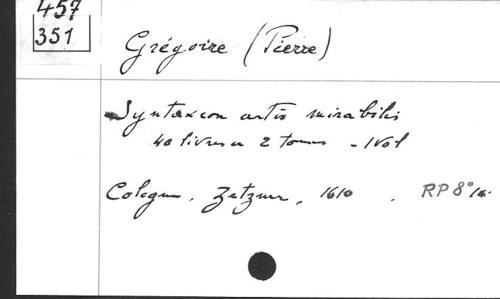 457
351
Grégoire (Pierre)
Syntaxcon artis mirabilis
40 livres en 2 tomes - 1 Vol
Cologne. Zetzner, 1610. RP 8°